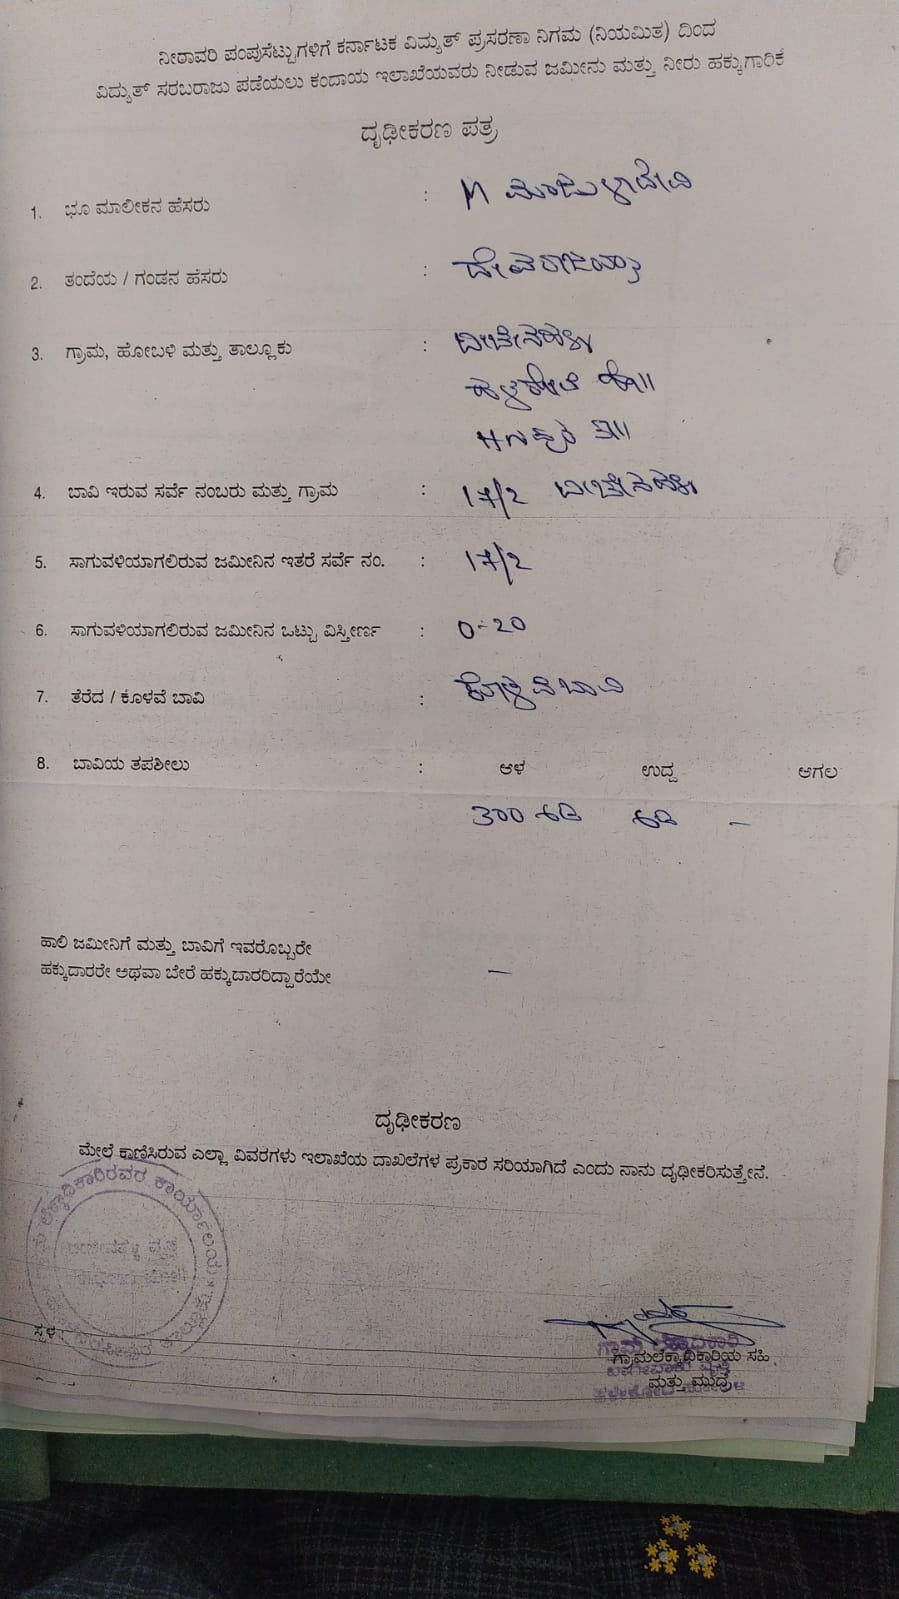 ನೀರಾವರಿ ಪಂಪುಸೆಟ್ಟುಗಳಿಗೆ ಕರ್ನಾಟಕ ವಿದ್ಯುತ್ ಪ್ರಸರಣಾ ನಿಗಮ (ನಿಯಮಿತ) ದಿಂದ
ವಿದ್ಯುತ್ ಸರಬರಾಜು ಪಡೆಯಲು ಕಂದಾಯ ಇಲಾಖೆಯವರು ನೀಡುವ ಜಮೀನು ಮತ್ತು ನೀರು ಹಕ್ಕುಗಾರಿಕೆ
ದೃಢೀಕರಣ ಪತ್ರ
1. ಭೂ ಮಾಲೀಕನ ಹೆಸರು : M ಮಂಜುಳಾದೇವಿ
2. ತಂದೆಯ / ಗಂಡನ ಹೆಸರು : ದೇವರಾಜಯ್ಯ
3. ಗ್ರಾಮ, ಹೋಬಳಿ ಮತ್ತು ತಾಲ್ಲೂಕು :
4. ಬಾವಿ ಇರುವ ಸರ್ವೆ ನಂಬರು ಮತ್ತು ಗ್ರಾಮ : 17/2
5. ಸಾಗುವಳಿಯಾಗಲಿರುವ ಜಮೀನಿನ ಇತರೆ ಸರ್ವೆ ನಂ. : 17/2
6. ಸಾಗುವಳಿಯಾಗಲಿರುವ ಜಮೀನಿನ ಒಟ್ಟು ವಿಸ್ತೀರ್ಣ : 0-20
7. ತೆರೆದ / ಕೊಳವೆ ಬಾವಿ : ಕೊಳವೆ ಬಾವಿ
8. ಬಾವಿಯ ತಪಶೀಲು : ಆಳ ಉದ್ದ ಅಗಲ
300 ಅಡಿ ಅಡಿ –
ಹಾಲಿ ಜಮೀನಿಗೆ ಮತ್ತು ಬಾವಿಗೆ ಇವರೊಬ್ಬರೇ
ಹಕ್ಕುದಾರರೇ ಅಥವಾ ಬೇರೆ ಹಕ್ಕುದಾರರಿದ್ದಾರೆಯೇ –
ದೃಢೀಕರಣ
ಮೇಲೆ ಕಾಣಿಸಿರುವ ಎಲ್ಲಾ ವಿವರಗಳು ಇಲಾಖೆಯ ದಾಖಲೆಗಳ ಪ್ರಕಾರ ಸರಿಯಾಗಿದೆ ಎಂದು ನಾನು ದೃಢೀಕರಿಸುತ್ತೇನೆ.
ಲೆಕ್ಕಾಧಿಕಾರಿರವರ ಕಾರ್ಯಾಲಯ
ಸ್ಥಳ :
ಗ್ರಾಮಲೆಕ್ಕಾಧಿಕಾರಿಯ ಸಹಿ
ಮತ್ತು ಮುದ್ರೆ